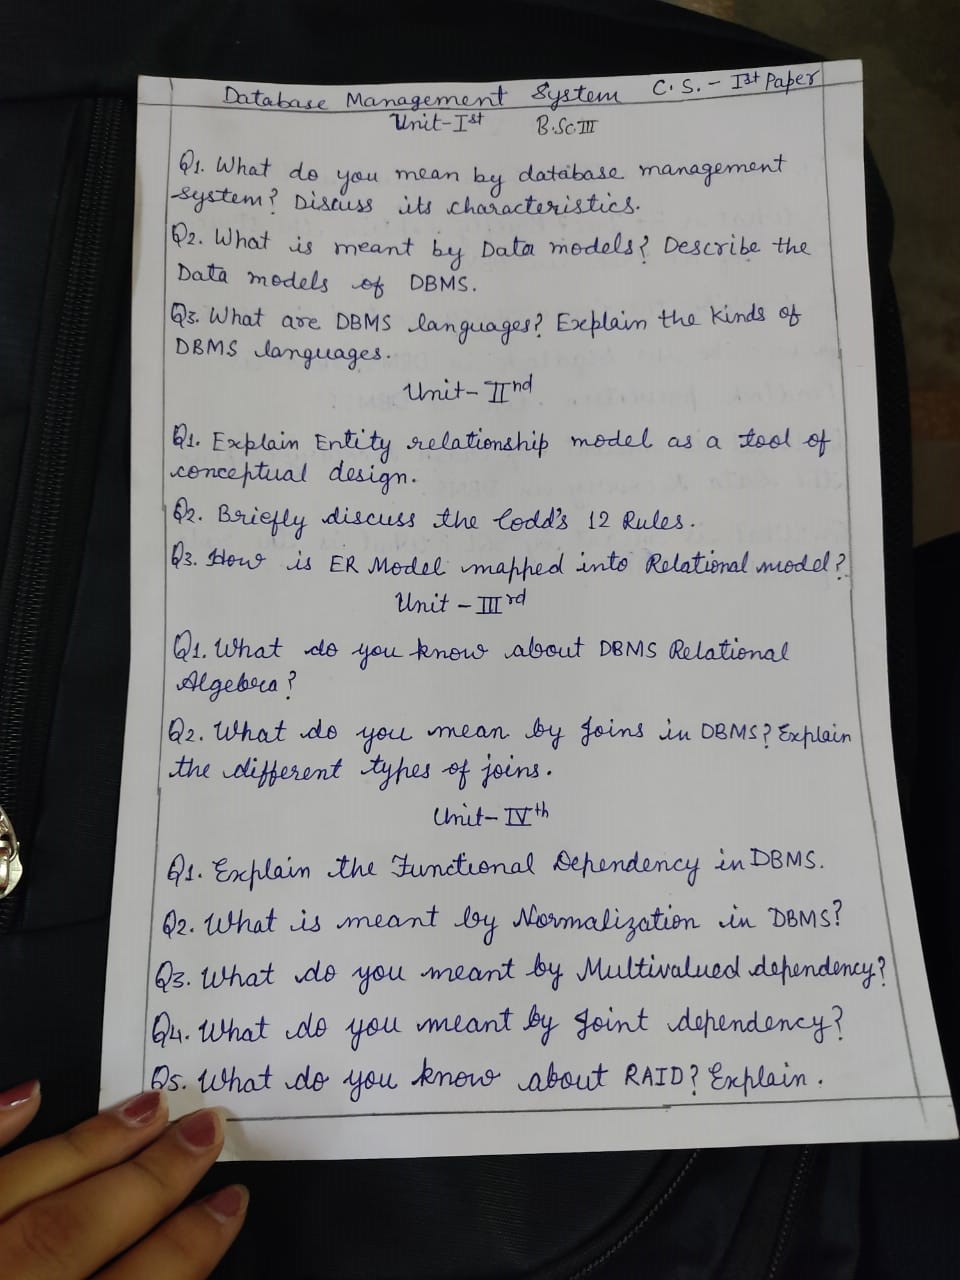 Database Management System C.S. - Ist Paper
Unit-Ist B.Sc III
Q1. What do you mean by database management
system? Discuss its characteristics.
Q2. What is meant by Data models? Describe the
Data models of DBMS.
Q3. What are DBMS languages? Explain the kinds of
DBMS languages.
Unit-IInd
Q1. Explain Entity relationship model as a tool of
conceptual design.
Q2. Briefly discuss the Codd's 12 Rules.
Q3. How is ER Model mapped into Relational model?
Unit-IIIrd
Q1. What do you know about DBMS Relational
Algebra?
Q2. What do you mean by Joins in DBMS? Explain
the different types of joins.
Unit-IVth
Q1. Explain the Functional Dependency in DBMS.
Q2. What is meant by Normalization in DBMS?
Q3. What do you meant by Multivalued dependency?
Q4. What do you meant by Joint dependency?
Q5. What do you know about RAID? Explain.